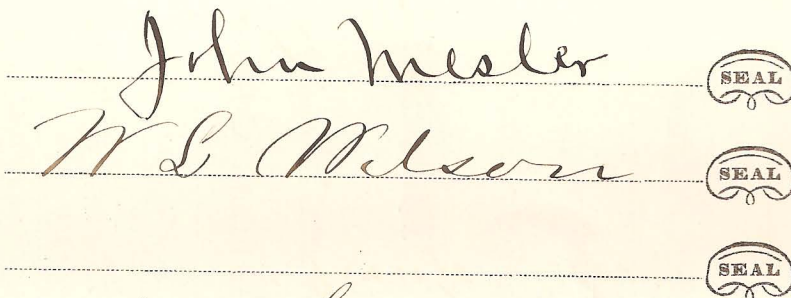 John Mesler SEAL
W L Wilson SEAL
SEAL